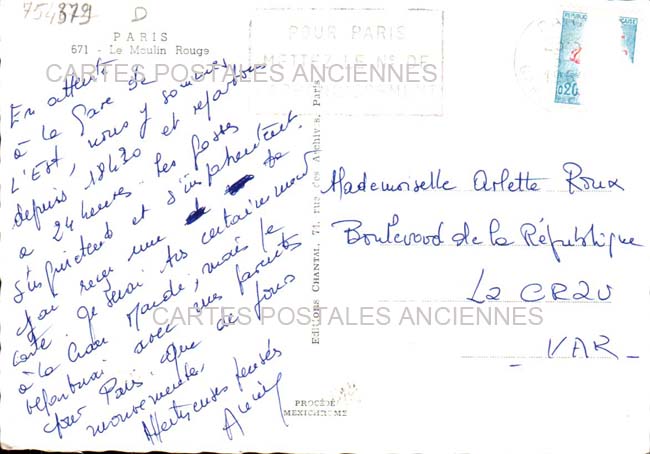 754379 D
PARIS
671 - Le Moulin Rouge
POUR PARIS
METTEZ LE N° DE
CARTES POSTALES ANCIENNES
En attente
à la Gare de
L'Est, nous y sommes
depuis 18h30 et repartons
a 24 heures. Les gosses
s'inquiètent et s'impatientent.
J'ai reçu une ta
carte. Je serai très certainement
à la Crau Mardi, mais je
repartirai avec mes parents
pour Paris. Que de jours
mouvementés.
Affectueuses pensées
Editions CHANTAL, 71, rue des Archives, Paris
PROCÉDÉ
MEXICHROME
REPUBLIQUE
0,20
Mademoiselle Arlette Roux
Boulevard de la République
La CRAU
CARTES POSTALES ANCIENNES
- VAR -